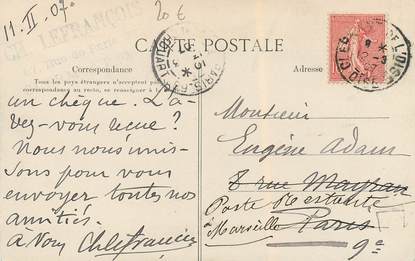 11. II. 07.
20 €
CH. LEFRANÇOIS
CARTE POSTALE
Correspondance
Tous les pays étrangers n'acceptent pas
correspondance au recto, se renseigner à
Adresse
un chèque. L'a-
vez-vous reçue?
Nous nous unis-
sons pour vous
envoyer toutes nos
amitiés.
à Vous Ch Lefrançois
Monsieur
Eugène Adam
8 rue Mayran
Poste Restante
à Marseille Paris
9e